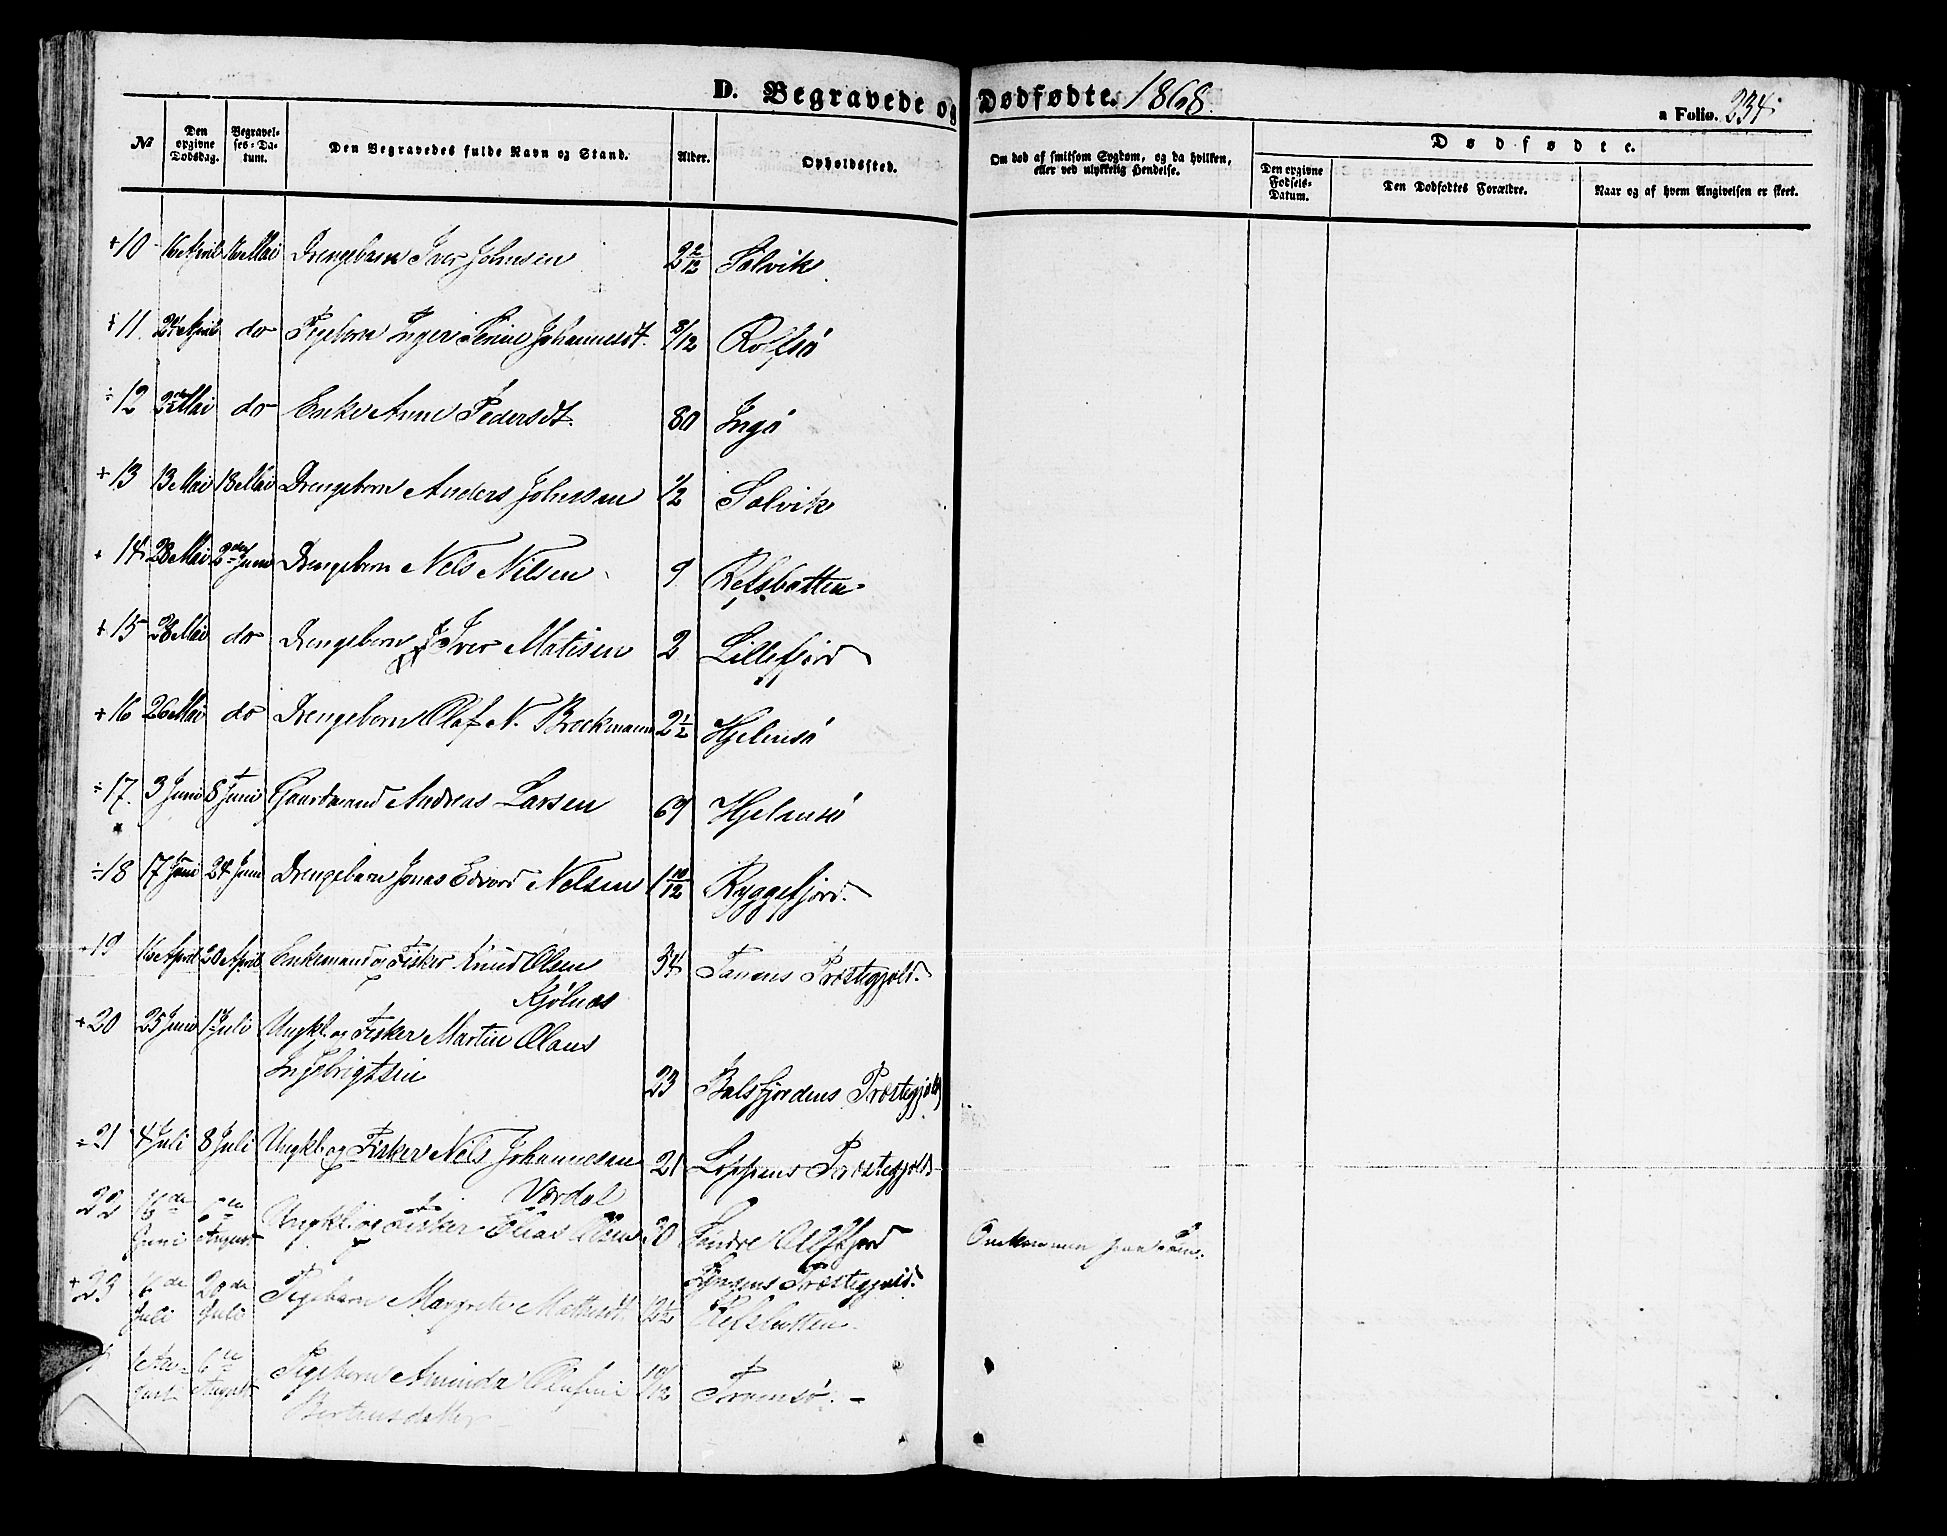 D. Begravede og Dødfødte. 1868.
a Folio. 234.
No
Den opgivne Dødsdag.
Begravelses-Datum.
Den Begravedes fulde Navn og Stand.
Alder.
Opholdssted.
Om død af smitsom Sygdom, og da hvilken, eller ved ulykkelig Hendelse.
Dødfødte.
Den opgivne Fødsels-Datum.
Den Dødfødtes Forældre.
Naar og af hvem Angivelsen er skeet.
+10 16 April 16 Mai Drengebarn Iver Johnsen 2 2/12 Solvik
11. 24 April do Pigebarn Inger Serine Johannesdt. 8/12 Rolfsø
÷12 2den Mai do Enke Anne Pedersdt. 80 Ingø
+13 13 Mai 18 Mai Drengebarn Anders Johnsen 1/2 Solvik
+14 28 Mai 2den Juni Drengebarn Nels Nilsen 9 Refsbotten
+15 28 Mai do Drengebarn Iver Matisen 2 Lillefjord
+16 26 Mai do Drengebarn Olaf N. Brockmann 2 1/2 Hjelmsø
÷17. 3 Juni 8 Juni Gaardmand Andreas Larsen 69 Hjelmsø
÷18 17 Juni 24 Juni Drengebarn Jonas Edvard Nelsen 1 10/12 Ryggefjord.
19 16 April 20 April Enkemand og Fisker Knud Olsen 54 Tanens Præstegjeld.
Kjølnæs
+20 25 Juni 1 Juli Ungkl. og Fisker Martin Olaus
Ingebrigtsen 23 Balsfjordens Præstegjeld
÷21 4 Juli 8 Juli Ungkl. og Fisker Nels Johannesen 21 Loppens Præstegjeld
Værdal
22 16de Juni 6te August Ungkl. og Fisker Elias Olsen 30 Søndre Olfkjord
Omkommen paa Søen.
Lyngens Præstegjeld.
+23 16de Juli 20de Juli Pigebarn Margrete Mathisdt. 2 1/2 Refsbotten
6te August Pigebarn Aminda Olufine 10/12 Tromsø. –
Bertensdatter